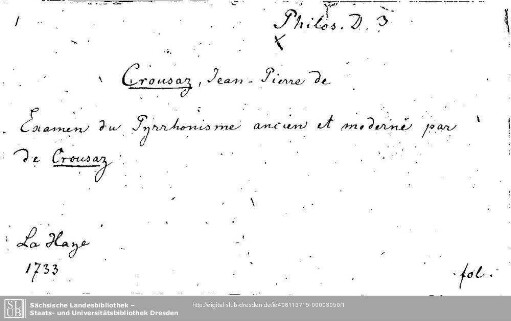 Philos. D. 3
Crousaz, Jean-Pierre de
Examen du Pyrrhonisme ancien et moderne par
de Crousaz
La Haye
1733
fol.
SLUB
Sächsische Landesbibliothek –
Staats- und Universitätsbibliothek Dresden